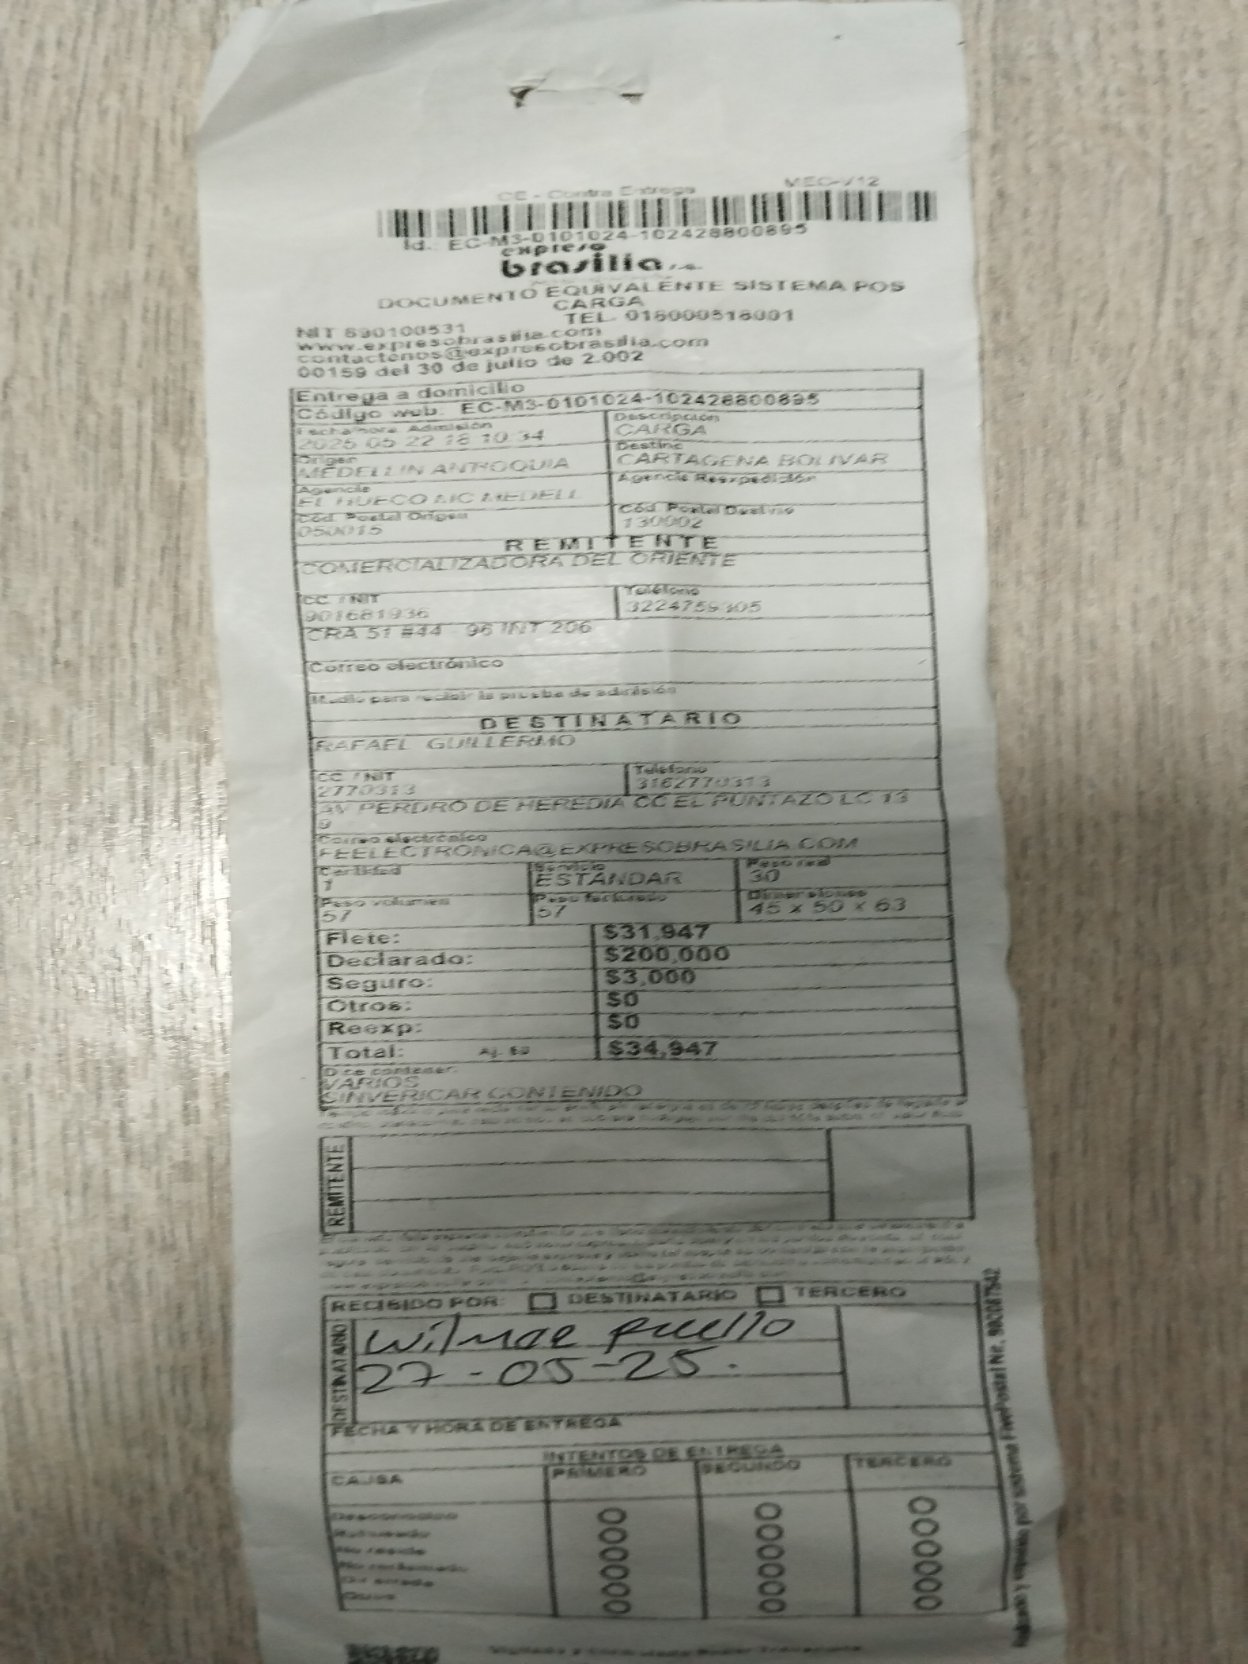 CE - Contra Entrega MEC-V12
Id.: EC-M3-0101024-102428800895
expreso
brasilia s.a.
DOCUMENTO EQUIVALENTE SISTEMA POS
CARGA
TEL. 018000518001
NIT 890100531
www.expresobrasilia.com
contactenos@expresobrasilia.com
00159 del 30 de julio de 2.002
Entrega a domicilio
Código web: EC-M3-0101024-102428800895
Fecha/hora Admisión Descripción
2025 05 22 18 10:34 CARGA
Origen Destino
MEDELLIN ANTIOQUIA CARTAGENA BOLIVAR
Agencia Agencia Reexpedición
EL HUECO MC MEDELL
Cód. Postal Origen Cód. Postal Destino
050015 130002
REMITENTE
COMERCIALIZADORA DEL ORIENTE
CC / NIT Teléfono
901681936 3224759305
CRA 51 #44 - 96 INT 206
Correo electrónico
Medio para recibir la prueba de admisión
DESTINATARIO
RAFAEL GUILLERMO
CC / NIT Teléfono
2770313 3162770313
AV PERDRO DE HEREDIA CC EL PUNTAZO LC 13
9
Correo electrónico
FEELECTRONICA@EXPRESOBRASILIA.COM
Cantidad Servicio Peso real
1 ESTANDAR 30
Peso volumen Peso facturado Dimensiones
57 57 45 x 50 x 63
Flete: $31,947
Declarado: $200,000
Seguro: $3,000
Otros: $0
Reexp: $0
Total: Aj. $0 $34,947
Dice contener:
VARIOS
SINVERICAR CONTENIDO
REMITENTE
RECIBIDO POR: DESTINATARIO TERCERO
DESTINATARIO
Wilmae puello
27-05-25.
FECHA Y HORA DE ENTREGA
INTENTOS DE ENTREGA
CAUSA PRIMERO SEGUNDO TERCERO
Desconocido
Rehusado
No reside
No reclamado
Dir errada
Otros